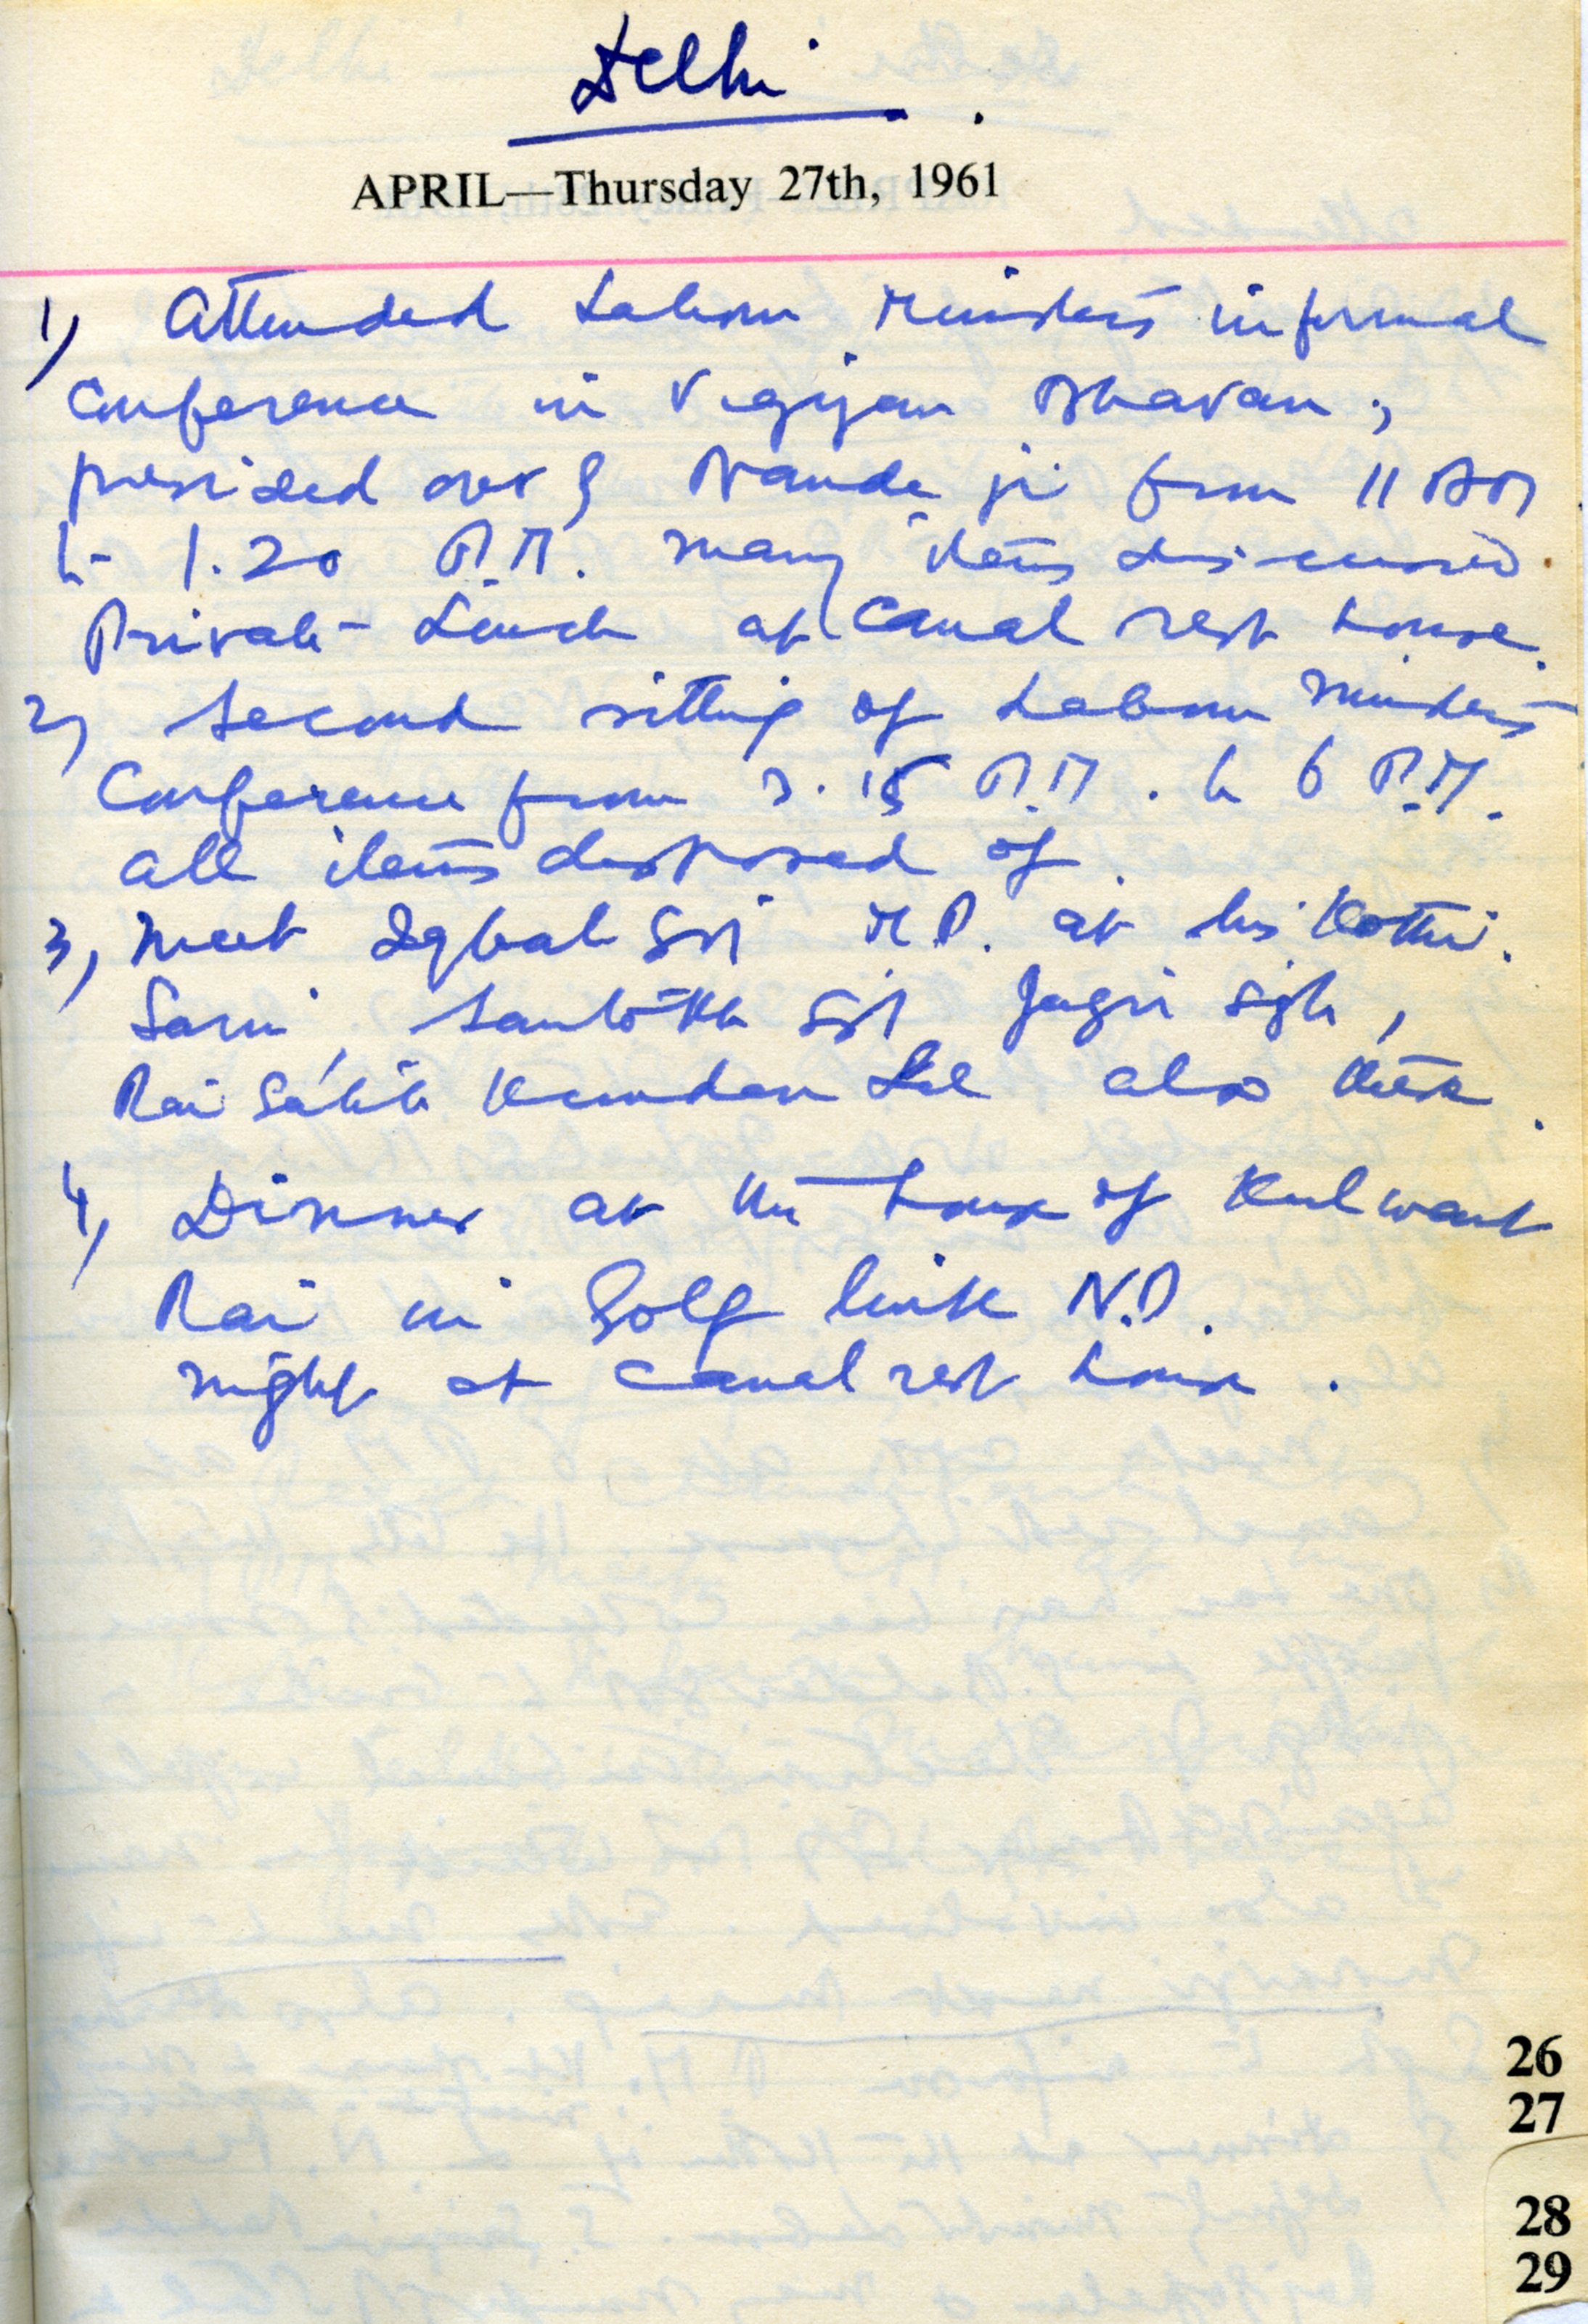 Delhi
APRIL—Thursday 27th, 1961
1) Attended Labour Ministers informal
Conference in Vigyan Bhavan,
presided over by Nanda ji from 11 AM
to 1.20 P.M. Many items discussed.
Private Lunch at Canal rest house.
2) Second sitting of Labour Ministers
Conference from 3.15 P.M. to 6 P.M.
all items disposed of.
3) Meet Iqbal Sgh M.P. at his Kothi.
Santokh Sgh Jagir Sgh,
Rai Sahib Kundan Lal also there.
4) Dinner at the house of Kulwant
Rai in Golf link N.D.
night at Canal rest house.
26
27
28
29